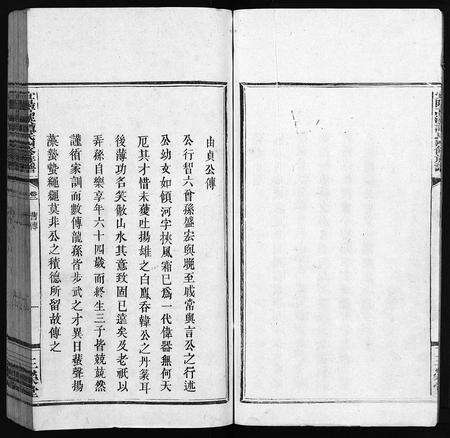 由貞公傳
公行智六曾孫盛宏與驪至戚常與言公之行述
公幼女如傾河字挾風霜已為一代偉器無何天
厄其才惜未獲吐揚雄之白鳳吞韓公之丹篆耳
後薄功名笑傲山水其意致固已遠矣及老祇以
弄孫自樂享年六十四歲而終生三子皆兢兢然
謹循家訓而數傳龍孫皆步武之才異日蜚聲揚
藻蟄蟄繩繩莫非公之積德所留故傳之